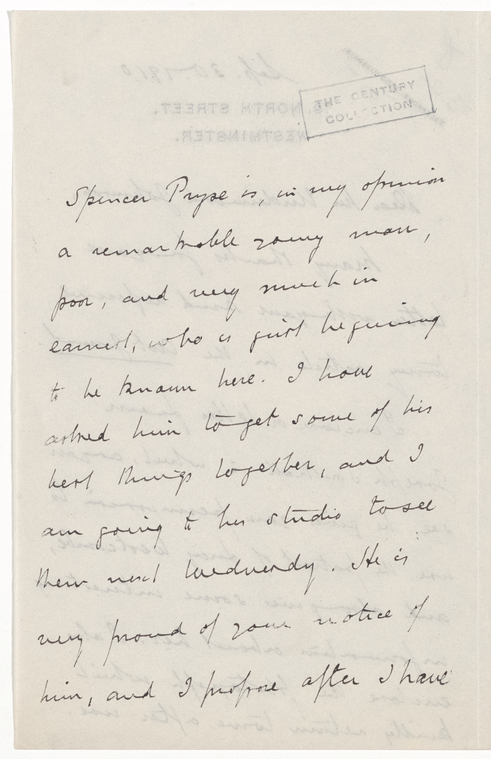 THE CENTURY
COLLECTION
Spencer Pryse is, in my opinion
a remarkable young man,
poor, and very much in
earnest, who is just beginning
to be known here. I have
asked him to get some of his
best things together, and I
am going to his studio to see
them next Wednesday. He is
very proud of your notice of
him, and I propose after I have